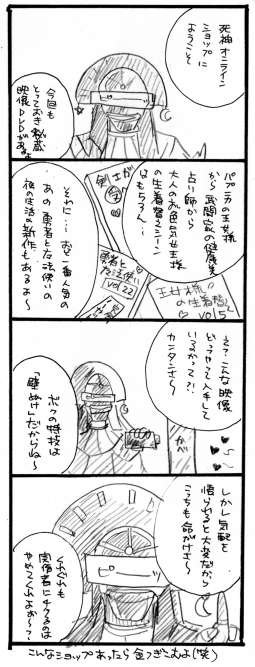 死神オンライン
ショップに
ようこそ
今回も
とっておき秘蔵
映像DVDがあるよ
パプニカの王女様
から武闘家の健康美
占い師から
大人のお色気女王様
の生着替えシーン
はもちろん…
剣士が
それに…
あの勇者と魔法使いの
夜の生活の新作
もあるよ〜
勇者と
魔法使い
VOL22
王女様
の生着替え
VOL5
え?こんな映像
どうやって入手して
いるかって?!
カンタンさ〜
かべ
ボクの特技は
「壁ぬけ」だからね〜
しかし気配を
悟られると大変だから
こっちも命がけさ〜
くれぐれも
関係者にチクるのは
やめてくれよお〜?
こんなショップあったら金つぎこむよ(笑)